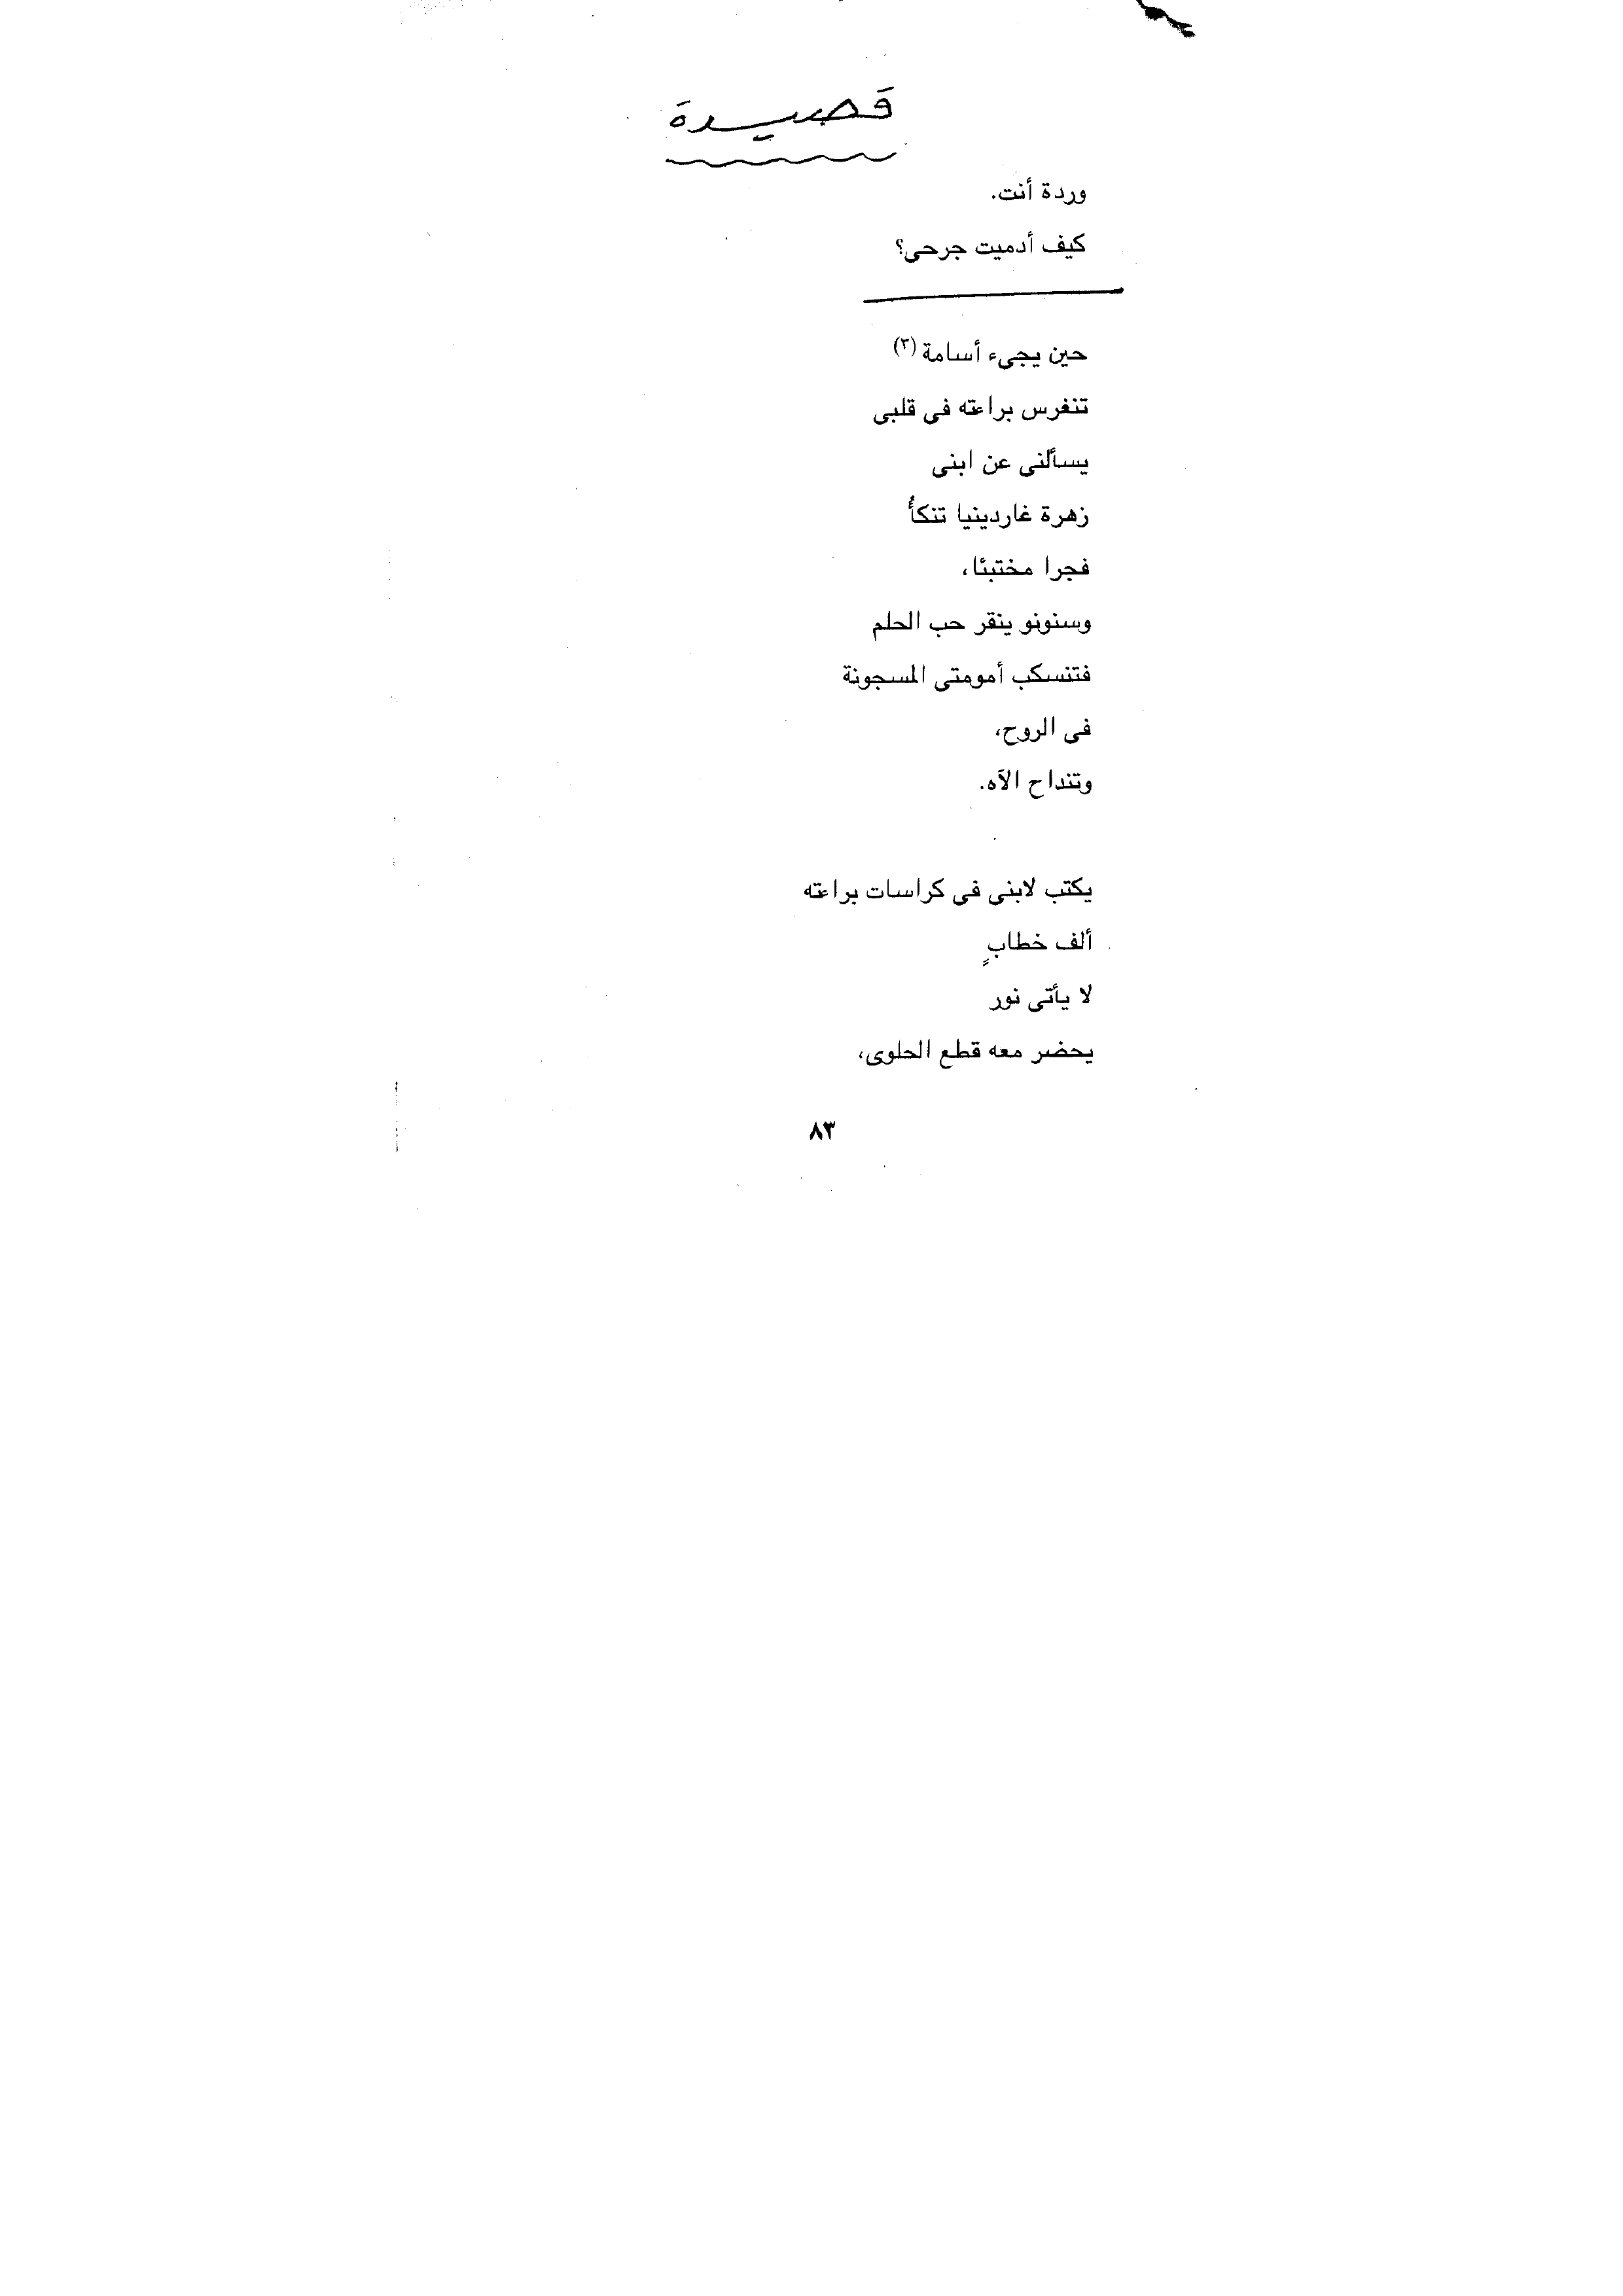 قصيدة
وردة أنت.
كيف أدميت جرحى؟
حين يجىء أسامة (٣)
تنغرس براعته فى قلبى
يسألنى عن ابنى
زهرة غاردينيا تنكأُ
فجرا مختبئا،
وسنونو ينقر حب الحلم
فتنسكب أمومتى المسجونة
فى الروح،
وتنداح الآه.
يكتب لابنى فى كراسات براعته
ألف خطابٍ
لا يأتى نور
يحضر معه قطع الحلوى،
٨٣